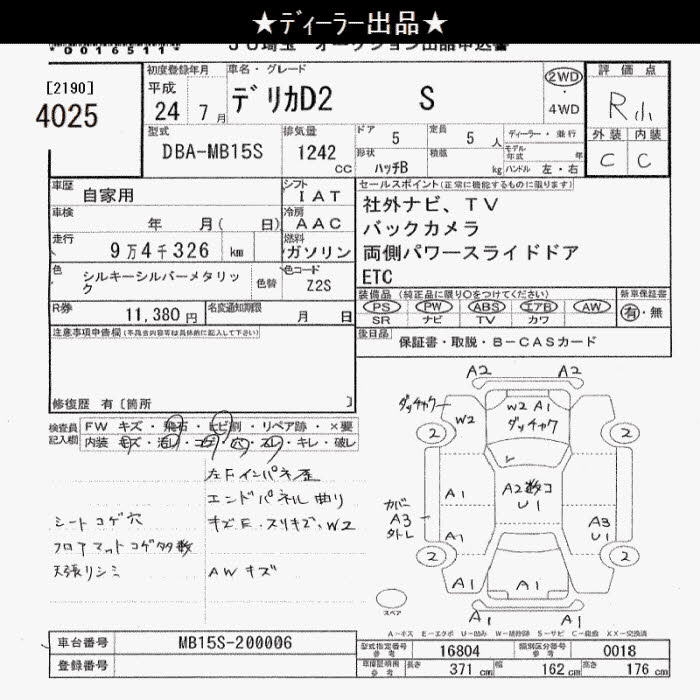 ★ディーラー出品★
0016511
JU埼玉 オークション出品申込書
[2190]
4025
初度登録年月
平成
24 7月
車名・グレード
デリカD2 S
2WD
・
4WD
評価点
R小
外装 内装
C C
型式
DBA-MB15S
排気量
1242 cc
ドア 5
定員 5人
形状 ハッチB
積載 kg
ディーラー・並行
モデル年式 年
ハンドル 左・右
車歴 自家用
シフト IAT
車検 年 月( 日)
冷房 AAC
走行 9万4千326 km
燃料 ガソリン
色 シルキーシルバーメタリック
色替
色コード Z2S
R券 11,380円
名変通知期限 月 日
セールスポイント(正常に機能するものに限ります)
社外ナビ、TV
バックカメラ
両側パワースライドドア
ETC
装備品(純正品に限り○をつけてください)
PS PW ABS エアB AW
SR ナビ TV カワ
新車保証書
有・無
後日品 保証書・取説・B-CASカード
注意事項申告欄(不具合内容等は具体的に記入して下さい)
修復歴 有〔箇所 〕
検査員記入欄
FW キズ・飛石・ヒビ割・リペア跡・×要
内装 キズ・汚レ・コゲ・穴・スレ・キレ・破レ
左Fインパネ歪
エンドパネル曲り
シートコゲ穴
キズE.スリキズ、W2
フロアマットコゲ多数
天張リシミ
AWキズ
A2 A2
ダッチャク
W2
W2 A1
ダッチャク
2 2
A1
A2数コ
U1
カバー
A3
外レ
A1
A3
U1
2 2
A1 A1 A1
A1 A1
スペア
A-キズ E-エクボ U-凹み W-補修跡 S-サビ C-腐蝕 XX-交換済
車台番号 MB15S-200006
登録番号
型式指定番号 参考 16804
類別区分番号 参考 0018
車庫証明用 参考 長さ 371cm 幅 162cm 高さ 176cm